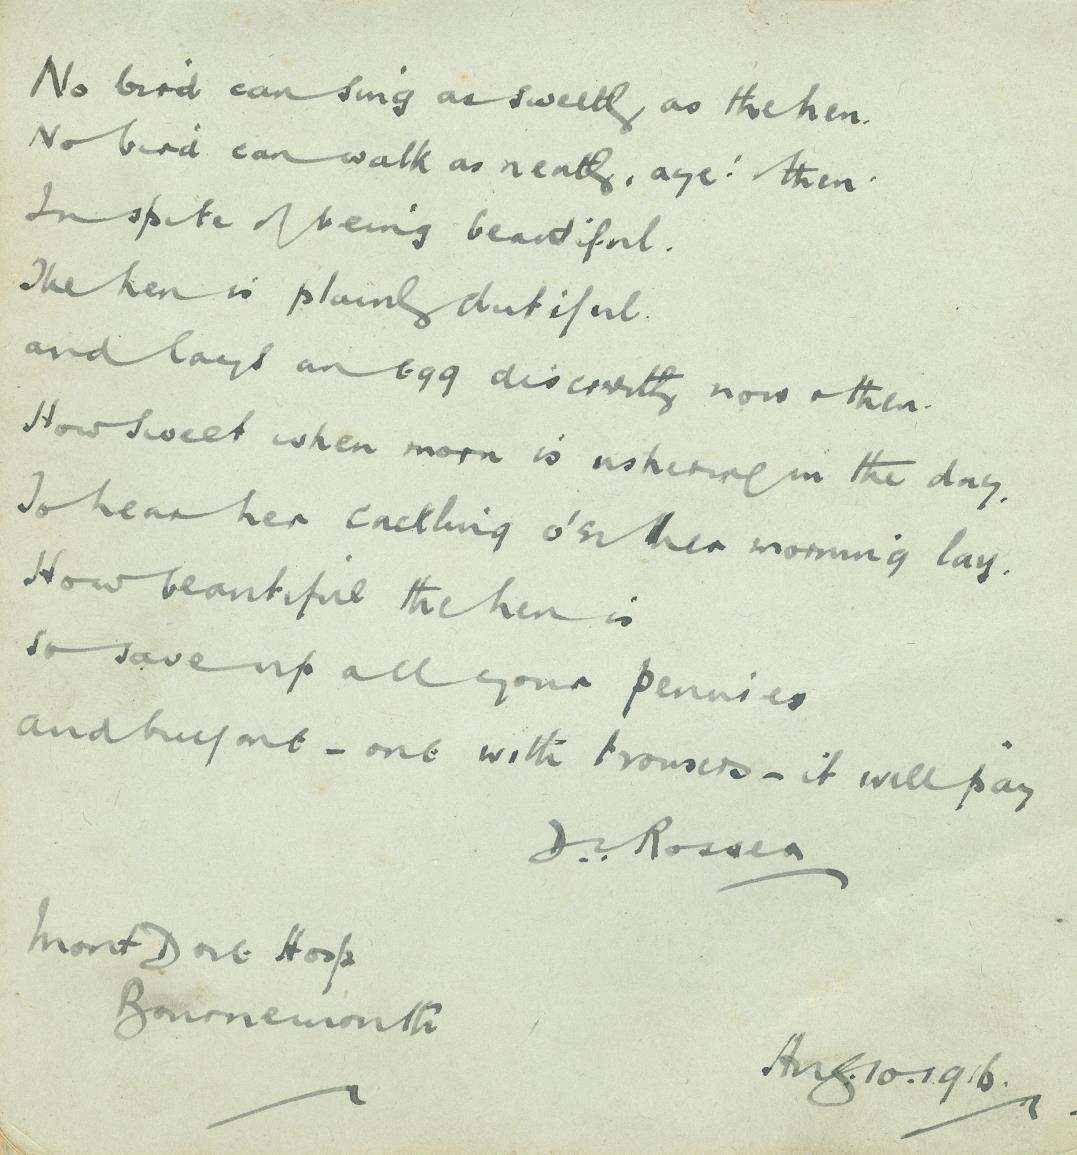 No bird can sing as sweetly as the hen.
No bird can walk as neatly, aye! then.
In spite of being beautiful.
The hen is plainly dutiful.
and lays an egg discreetly now & then.
How sweet when morn is ushering in the day,
To hear her cackling o'er her morning lay.
How beautiful the hen is
so save up all your pennies
and buy one - one with trousers - it will pay
Dr. Rosser
Mont Dore Hosp
Bournemouth
Aug. 10. 1916.